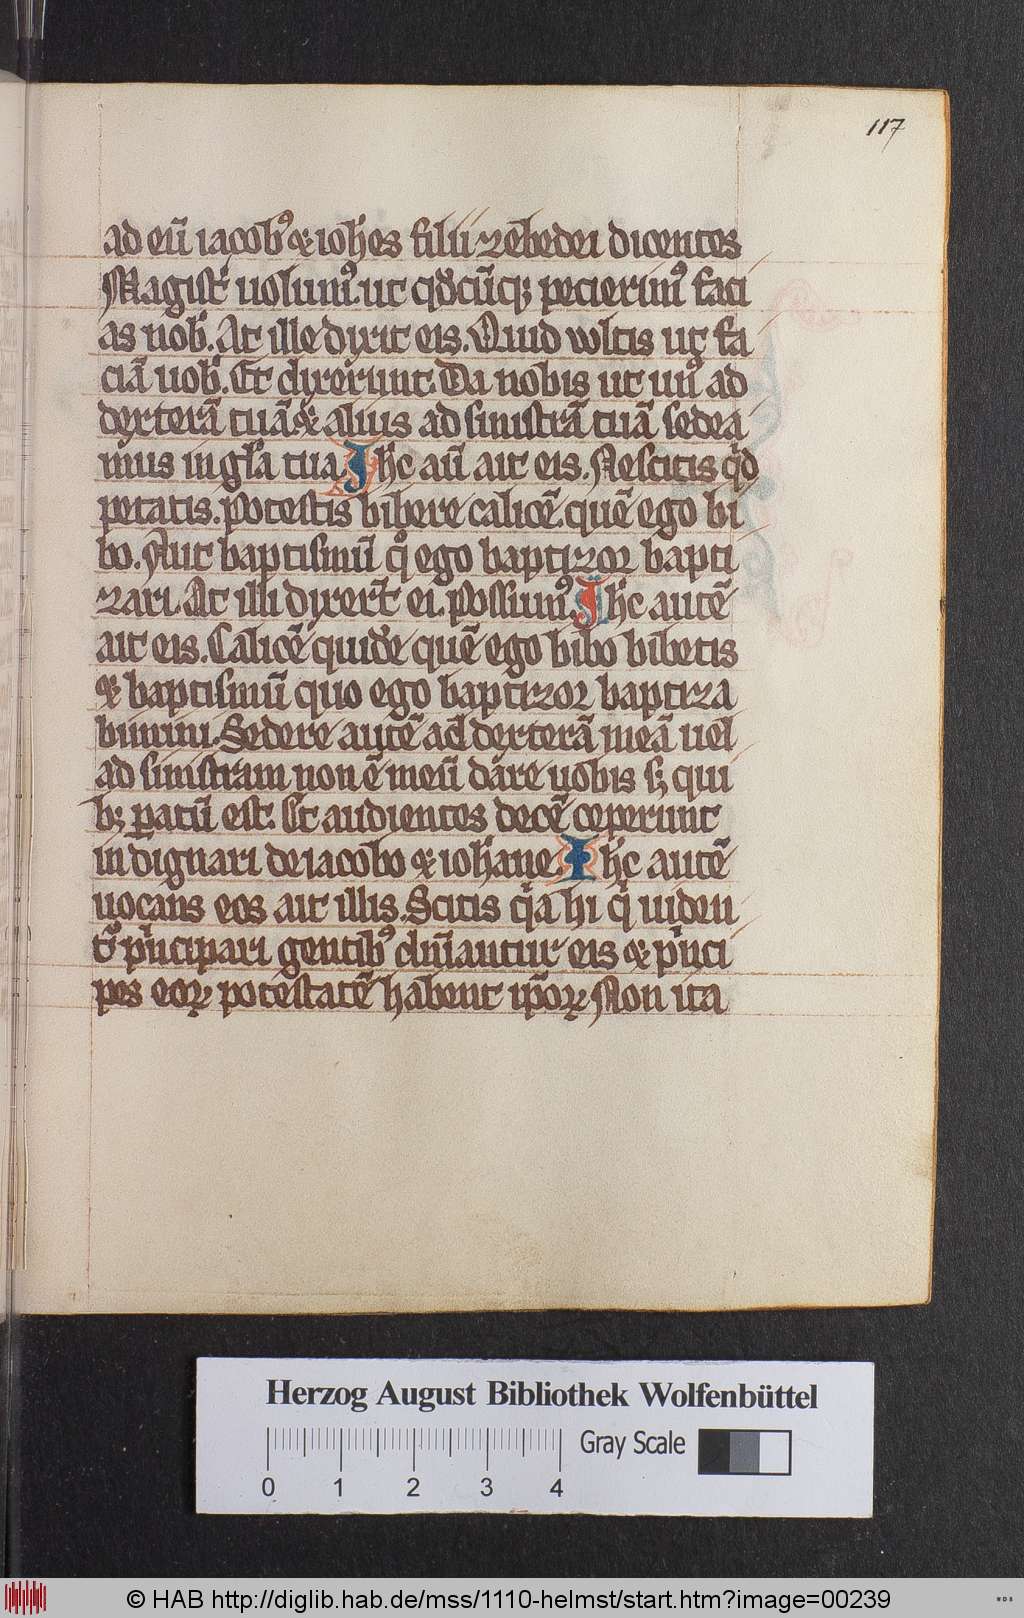 117
ad eū iacob⁹ ⁊ ioh̄es filii zebedei dicentes
Magist̄ uolum⁹ ut qd̄cūq; pecierim⁹ faci
as nob̄. At ille dixit eis. Quid wltis ut fa
ciā uob̄. Et dixerunt. Da nobis ut un⁹ ad
dexterā tuā ⁊ alius ad sinistrā tuā sedea
mus in gl̄a tua. Ih̄c aū ait eis. Nescitis qd̄
petatis. Potestis bibere calicē quē ego bi
bo. Aut baptismū qͦ ego baptizor bapti
zari. At illi dixer̄t ei. Possum⁹. Ih̄c autē
ait eis. Calicē quidē quē ego bibo bibetis
⁊ baptismū quo ego baptizor baptiza
bimini. Sedere autē ad dexterā meā uel
ad sinistram non ē meū dare uobis s; qui
b; ꝑatū est. Et audientes decē ceperunt
indignari de iacobo ⁊ ioh̄ane. Ih̄c autē
uocans eos ait illis. Scitis qͥa hi qͥ uiden
tͬ pͥncipari gentib⁹ dn̄antur eis ⁊ pͥnci
pes eoꝝ potestatē habent ip̄oꝝ Non ita
Herzog August Bibliothek Wolfenbüttel
0 1 2 3 4 Gray Scale
© HAB http://diglib.hab.de/mss/1110-helmst/start.htm?image=00239